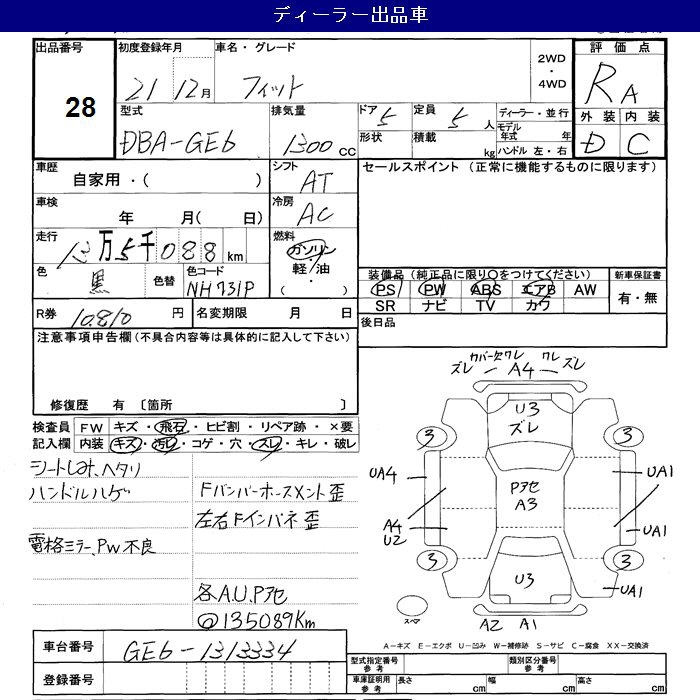 ディーラー出品車
出品番号
28
初度登録年月
21 12月
車名・グレード
フィット
2WD
・
4WD
評価点
RA
型式
DBA-GE6
排気量
1300cc
ドア
5
形状
定員
5人
積載
kg
ディーラー・並行
モデル年式 年
ハンドル 左・右
外装 内装
D C
車歴
自家用・( )
シフト
AT
セールスポイント (正常に機能するものに限ります)
車検
年 月( 日)
冷房
AC
走行
13万5千088km
燃料
ガソリン
軽油
・
( )
色
黒
色替
色コード
NH731P
装備品(純正品に限り○をつけてください)
PS PW ABS エアB AW
SR ナビ TV カワ
新車保証書
有・無
R券
10,810円
名変期限 月 日
後日品
注意事項申告欄(不具合内容等は具体的に記入して下さい)
修復歴 有 〔箇所 〕
検査員 FW キズ・飛石・ヒビ割・リペア跡・×要
記入欄 内装 キズ・汚レ・コゲ・穴・スレ・キレ・破レ
シートしみ、ヘタリ
ハンドルハゲ
Fバンパーホースメント歪
左右Fインパネ歪
電格ミラー、PW不良
各A.U.Pアセ
@135089Km
カバー欠ワレ ワレ
ズレ A4 ズレ
U3
ズレ
3 3
UA4 UA1
Pアセ
A3
A4
U2
UA1
3 3
U3
UA1
スペア
A2 A1
A-キズ E-エクボ U-凹み W-補修跡 S-サビ C-腐食 XX-交換済
車台番号
GE6-1313334
登録番号
型式指定番号
参考
類別区分番号
参考
車庫証明用
参考
長さ cm
幅 cm
高さ cm